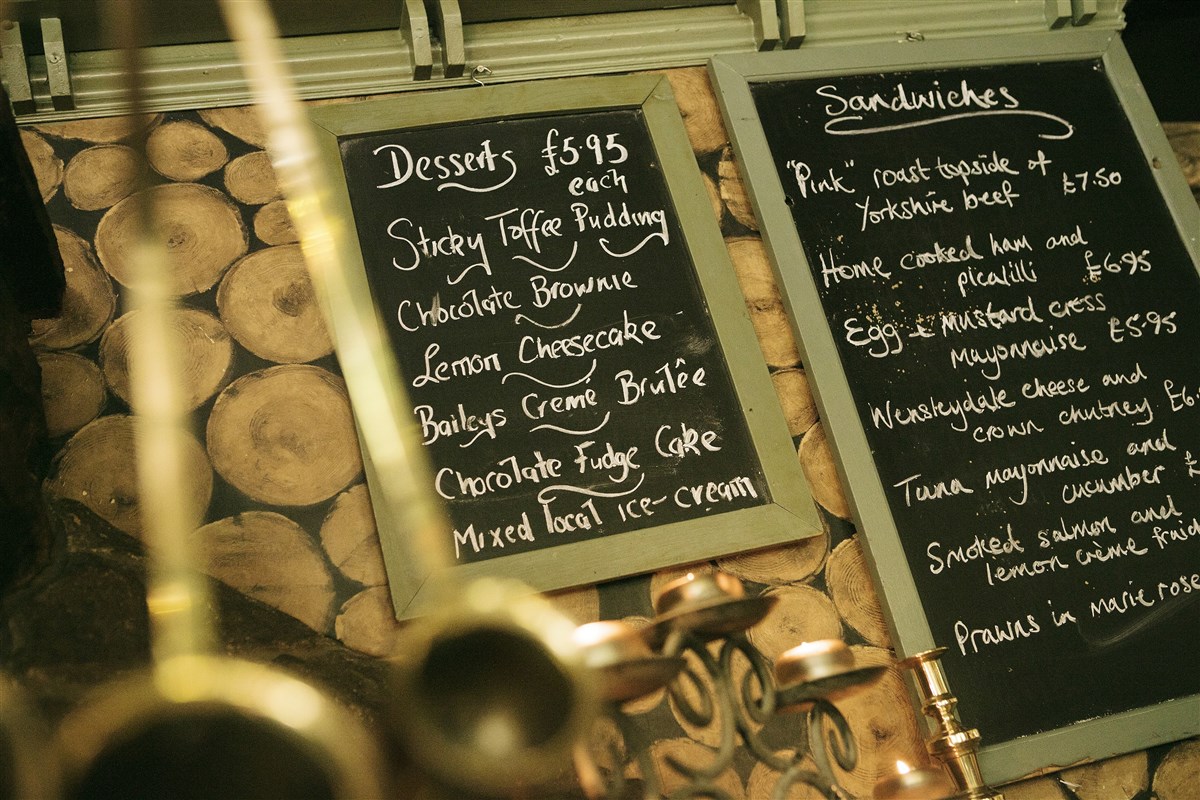 Desserts £5.95
each
Sticky Toffee Pudding
Chocolate Brownie
Lemon Cheesecake
Baileys Cremé Brulêe
Chocolate Fudge Cake
Mixed local ice-cream
Sandwiches
"Pink" roast topside of
Yorkshire beef £7.50
Home cooked ham and
picalilli £6.95
Egg & mustard cress
Mayonnaise £5.95
Wensleydale cheese and
crown chutney £6.
Tuna mayonnaise and
cucumber £
Smoked salmon and
lemon crème fraic
Prawns in marie rose